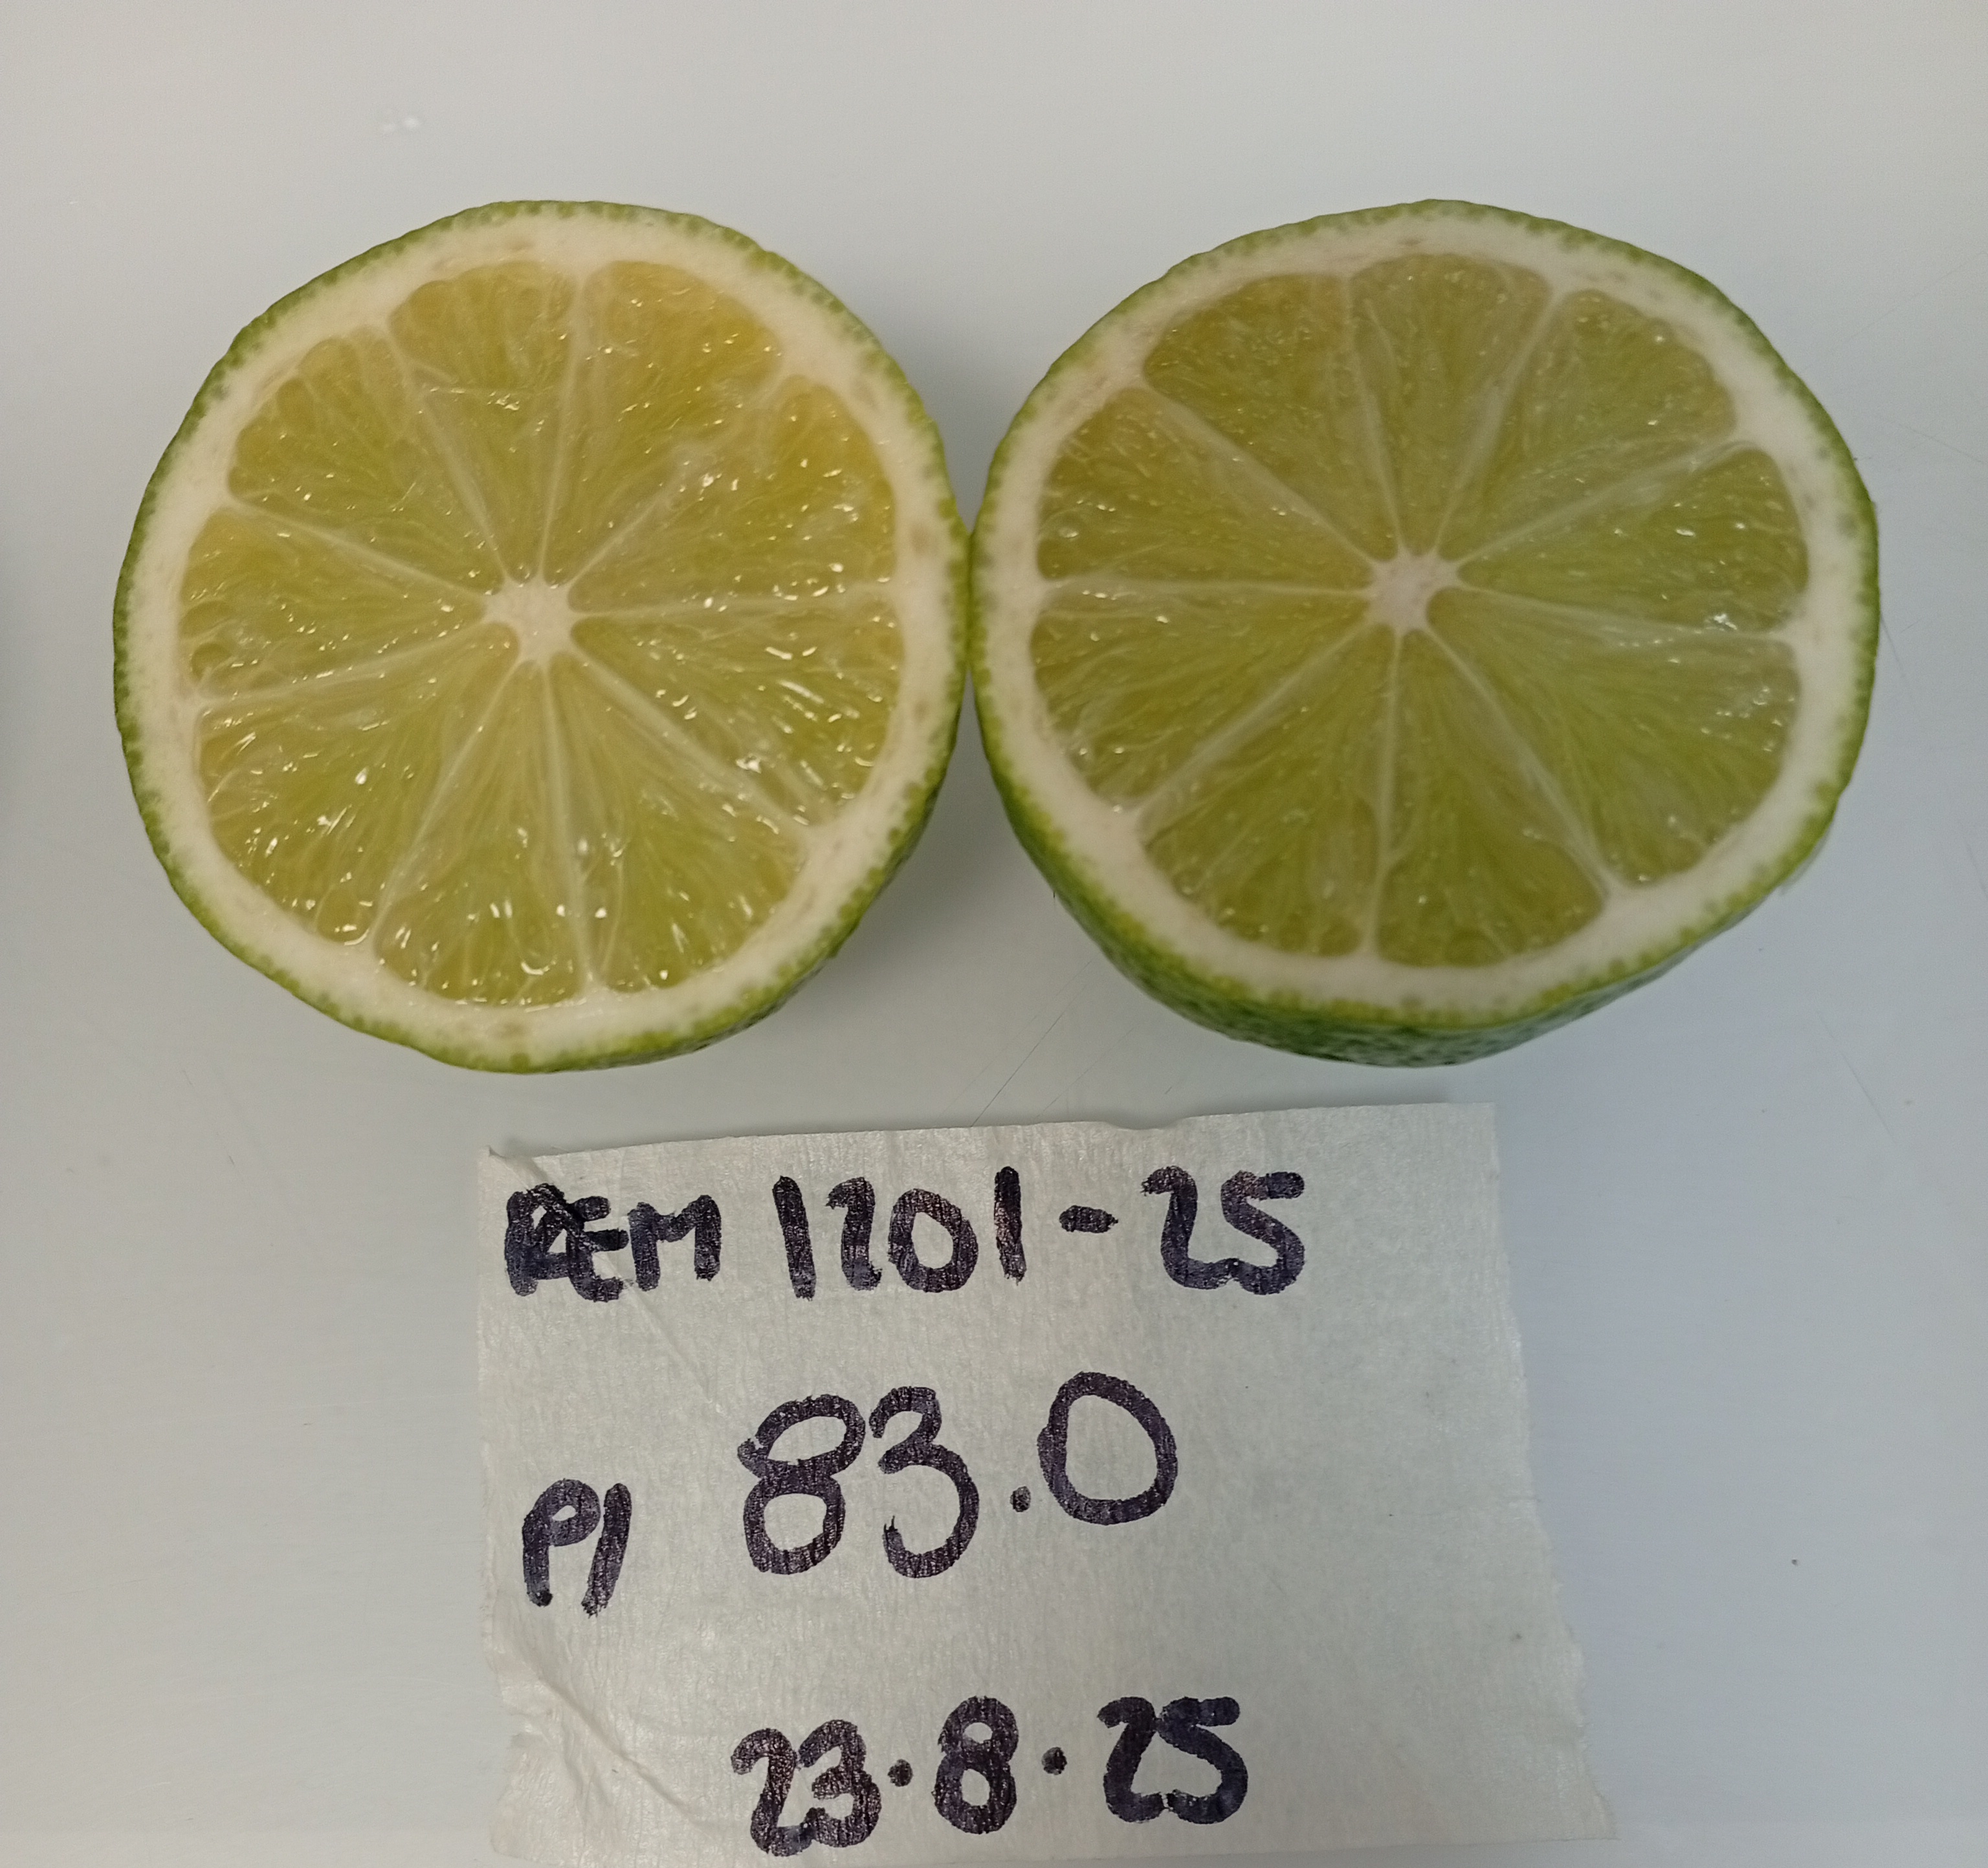 REM 1201-25
P1 83.0
23.8.25